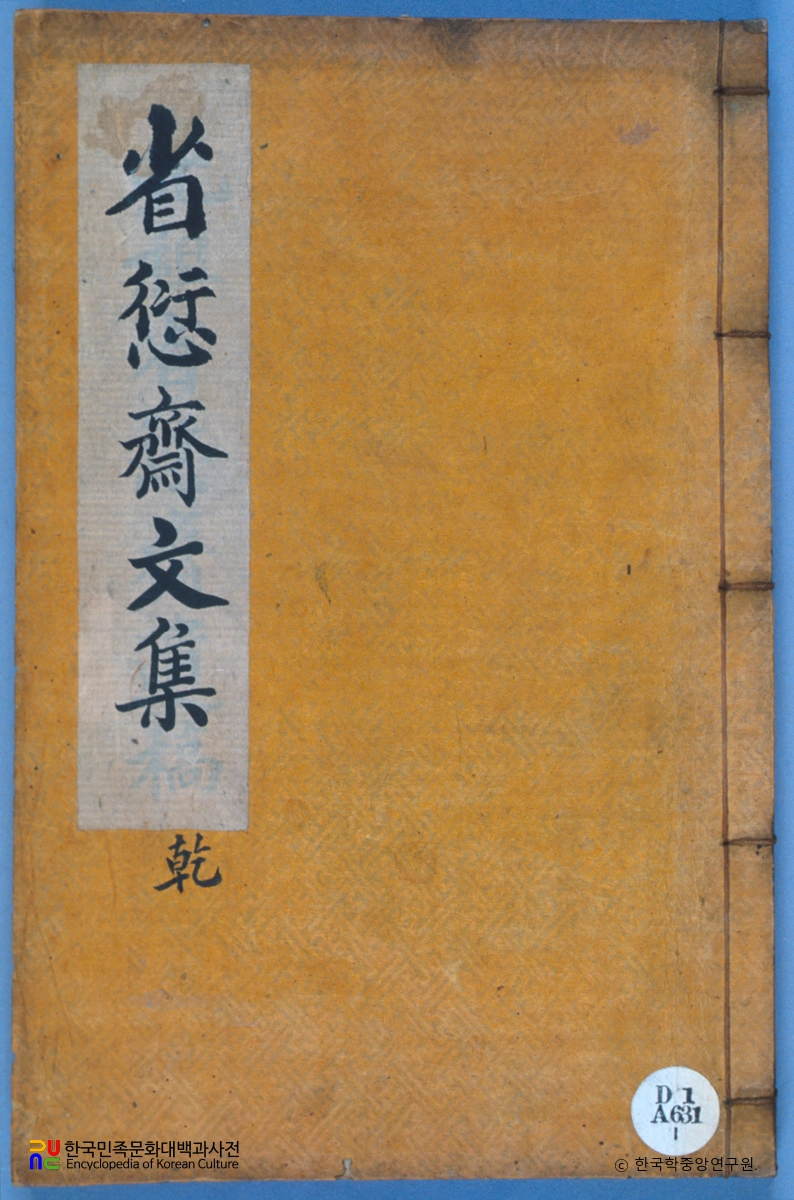 省愆齋文集
乾
D 1
A631
1
한국민족문화대백과사전
Encyclopedia of Korean Culture
© 한국학중앙연구원.